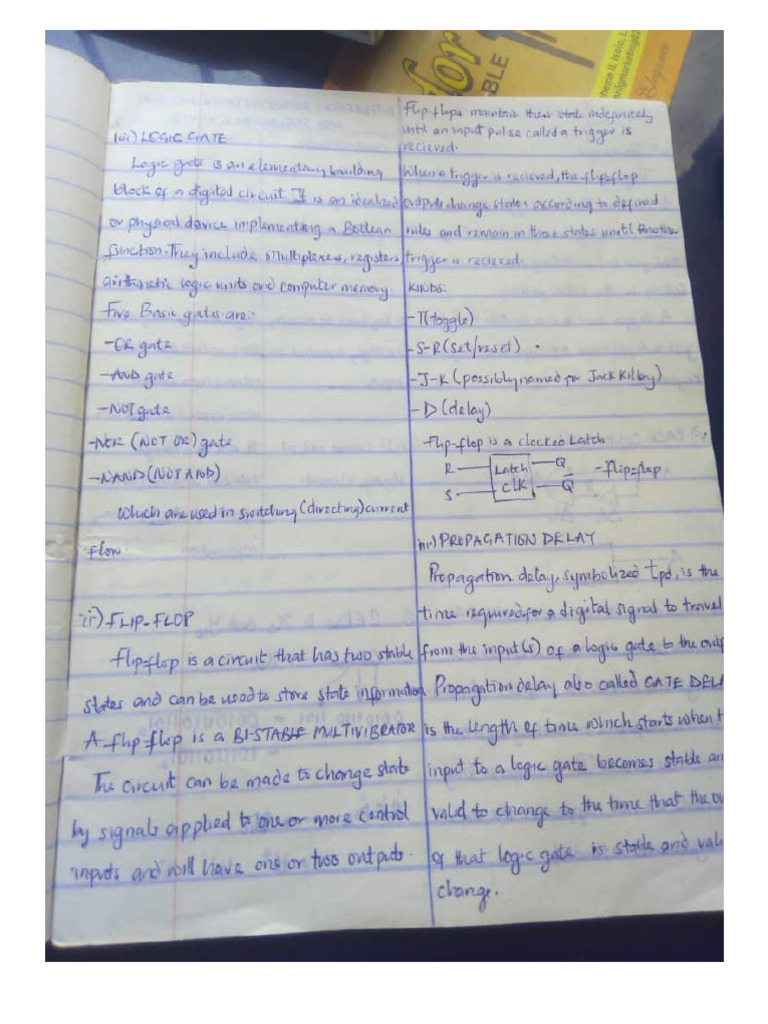 dor
ABLE
iai) LOGIC GATE
Logic gate is an elementary building
block of a digital circuit It is an idealized
or physical device implementing a Boolean
function. They include multiplexers, registers
arithmetic logic units and computer memory.
Five Basic gates are:
-OR gate
-AND gate
-NOT gate
-NOR (NOT OR) gate
-NAND (NOT AND)
Which are used in switching (directing) current
flow.
ii) FLIP-FLOP
Flip-flop is a circuit that has two stable
states and can be used to store state information
A flip-flop is a BI-STABLE MULTIVIBRATOR
The circuit can be made to change state
by signals applied to one or more control
inputs and will have one or two outputs.
Flip-flops maintain their state indefinitely
until an input pulse called a trigger is
recieved.
When a trigger is recieved, the flip-flop
outputs change states according to defined
rules and remain in those states until another
trigger is recieved.
KINDS:
-T (toggle)
-S-R (set/reset)
-J-K (possibly named for Jack Kilby)
-D (delay)
Flip-flop is a clocked Latch
R Latch Q -flip-flop
S CLK Q̅
iii) PROPAGATION DELAY
Propagation delay, symbolized tpd, is the
time required for a digital signal to travel
from the input(s) of a logic gate to the outp
Propagation delay also called GATE DELA
is the length of time which starts when t
input to a logic gate becomes stable an
valid to change to the time that the ou
of that logic gate is stable and vali
change.